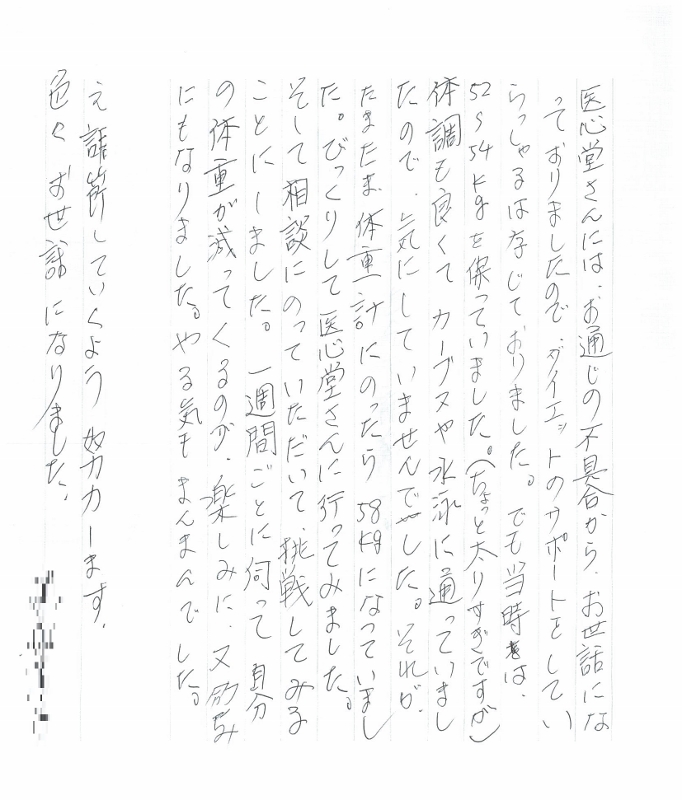 医心堂さんには、お通じの不具合から、お世話にな
っておりましたので、ダイエットのサポートをしてい
らっしゃるは存じておりました。でも当時は、
52〜54kgを保っていました。(ちょっと太りすぎですが)
体調も良くて カーブスや水泳に通っていまし
たので、気にしていませんでした。それが、
たまたま、体重計にのったら 58kgになっていまし
た。びっくりして医心堂さんに行ってみました。
そして相談にのっていただいて、挑戦してみる
ことにしました。一週間ごとに伺って 自分
の体重が減ってくるのが、楽しみに、又励み
にもなりました。やる気も まんまんでした。
え 調節していくよう 努力します。
色々 お世話になりました。